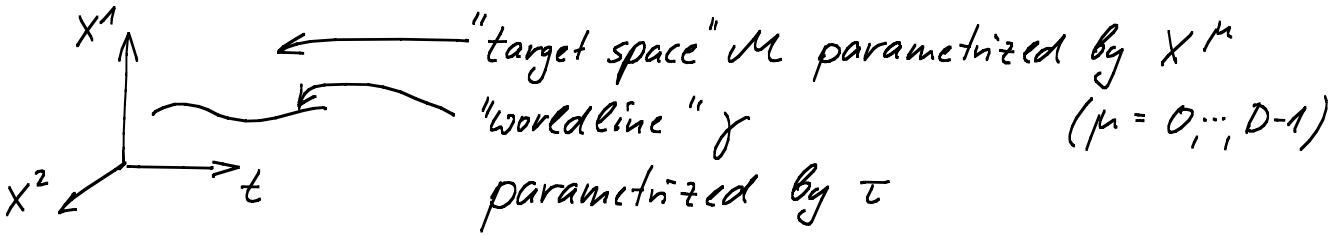 X¹
"target space" M parametrized by X^μ
"worldline" γ (μ = 0,..., D-1)
X² t parametrized by τ